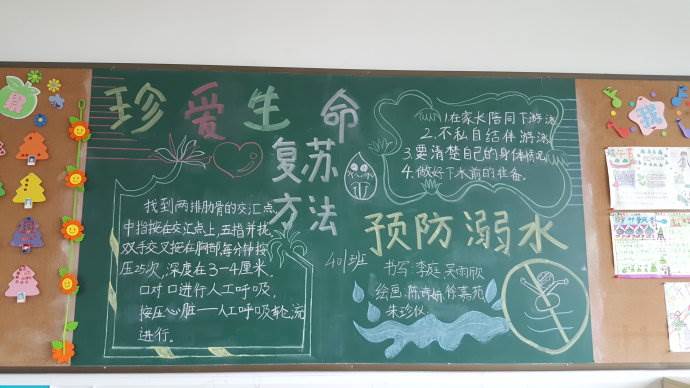 珍爱生命
复苏
方法
找到两排肋骨的交汇点,
中指按在交汇点上,五指并拢,
双手交叉按在胸部,每分钟按
压25次,深度在3-4厘米.
口对口进行人工呼吸,
按压心脏——人工呼吸轮流
进行。
1.在家长陪同下游泳
2.不私自结伴游泳
3.要清楚自己的身体情况
4.做好下水前的准备.
预防溺水
401班
书写:李庭 吴雨欣
绘画:陈 徐嘉苑
朱珍仪
我